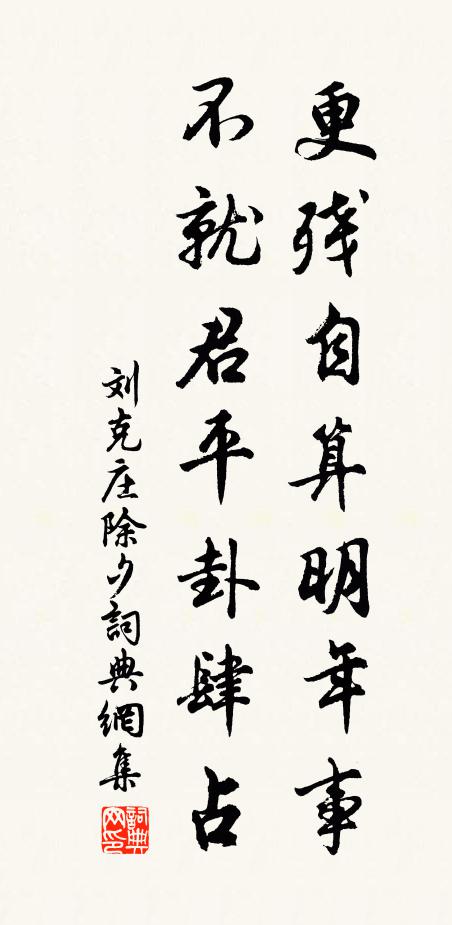 更残自算明年事
不就君平卦肆占
刘克庄除夕詞典網集
詞典网印